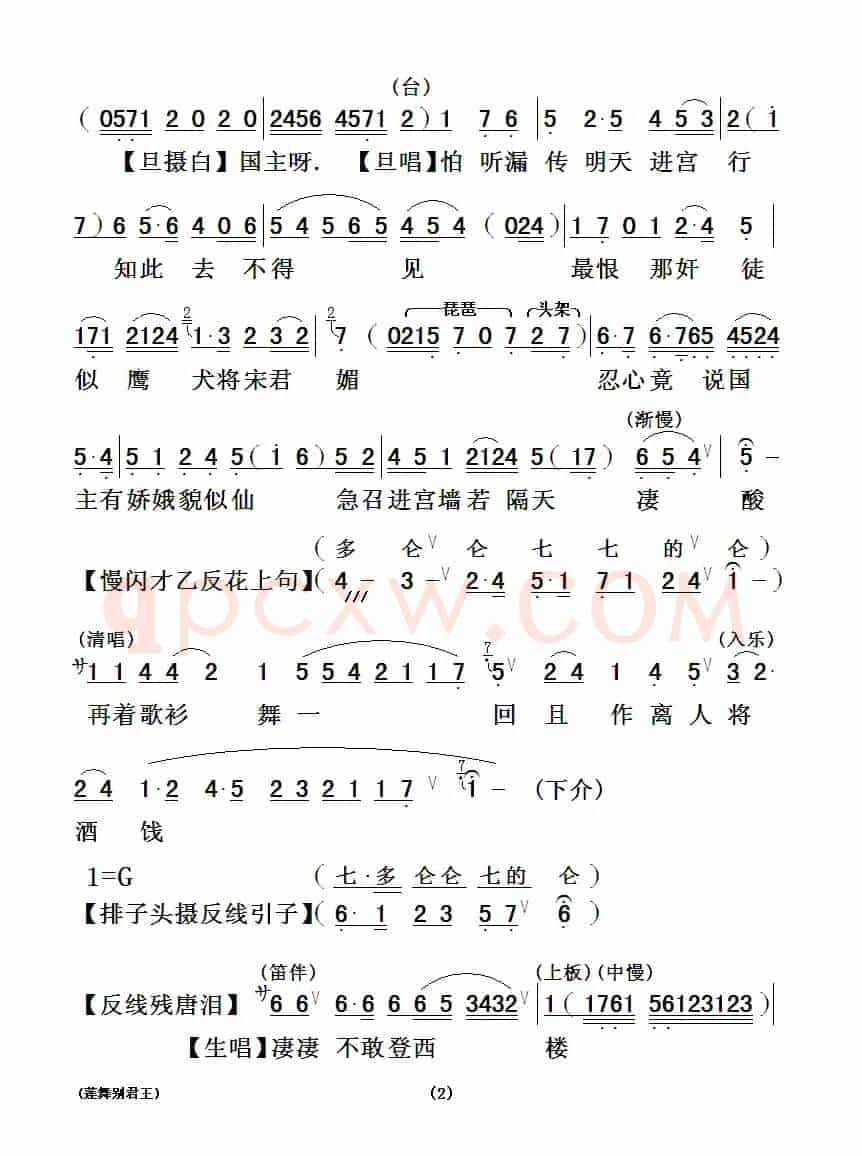 (台)
(0571 2020|2456 4571 2)1 7 6|5 2·5 4 53|2(i
【旦摄白】国主呀.【旦唱】怕 听漏 传 明天 进宫 行
7)6 5·6 406|54565 454 (024)|1 7 0 1 2·4 5|
知此 去 不得 见 最恨 那奸 徒
琵琶 头架
171 2124 2 1·3 2 32|2 7 (0215 707 27)|6·7 6·765 4524
似 鹰 犬将宋君 媚 忍心竟 说国
(渐慢)
5·4|51 24 5(i 6)52|451 2124 5(17)|654V 5-
主有娇娥貌似仙 急召进宫墙若 隔天 凄 酸
(多 仑V 仑 七 七 的V仑)
【慢闪才乙反花上句】(4- 3-V 2·4 5·1 71 24V i-)
(清唱) (入乐)
サ11 44 2 1 5542117 7 5V 24 1 4 5V 32·
再着歌衫 舞一 回 且 作 离 人 将
24 1·2 4·5 232117V 7 i- (下介)
酒 饯
1=G (七·多 仑仑 七的 仑)
【排子头摄反线引子】(6·1 23 57V 6)
(笛伴) (上板)(中慢)
【反线残唐泪】サ66V 6·66 65 3432V|1(1761 56123123)|
【生唱】凄凄 不敢登西 楼
(莲舞别君王)
(2)
qpcxw.COM